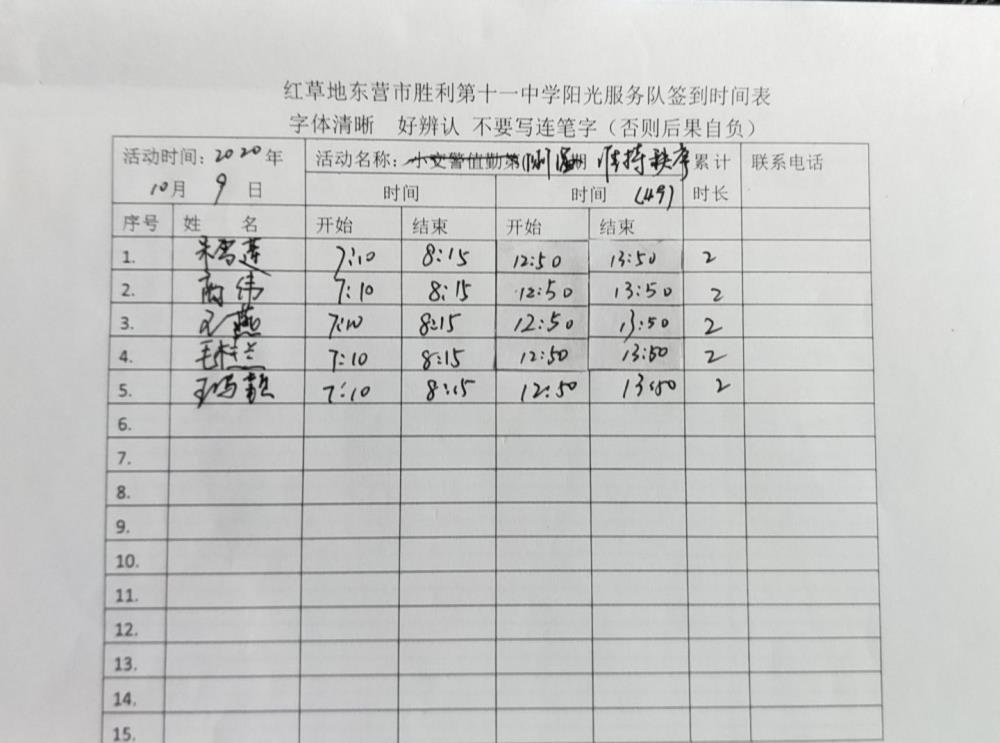 红草地东营市胜利第十一中学阳光服务队签到时间表
字体清晰 好辨认 不要写连笔字（否则后果自负）
活动时间：2020年 活动名称：小交警值勤第 期 测温 维持秩序 累计 联系电话
10月 9 日 时间 时间 (49) 时长
序号 姓 名 开始 结束 开始 结束
1. 7:10 8:15 12:50 13:50 2
2. 伟 7:10 8:15 12:50 13:50 2
3. 燕 7:10 8:15 12:50 13:50 2
4. 毛桂兰 7:10 8:15 12:50 13:50 2
5. 7:10 8:15 12:50 13:50 2
6.
7.
8.
9.
10.
11.
12.
13.
14.
15.